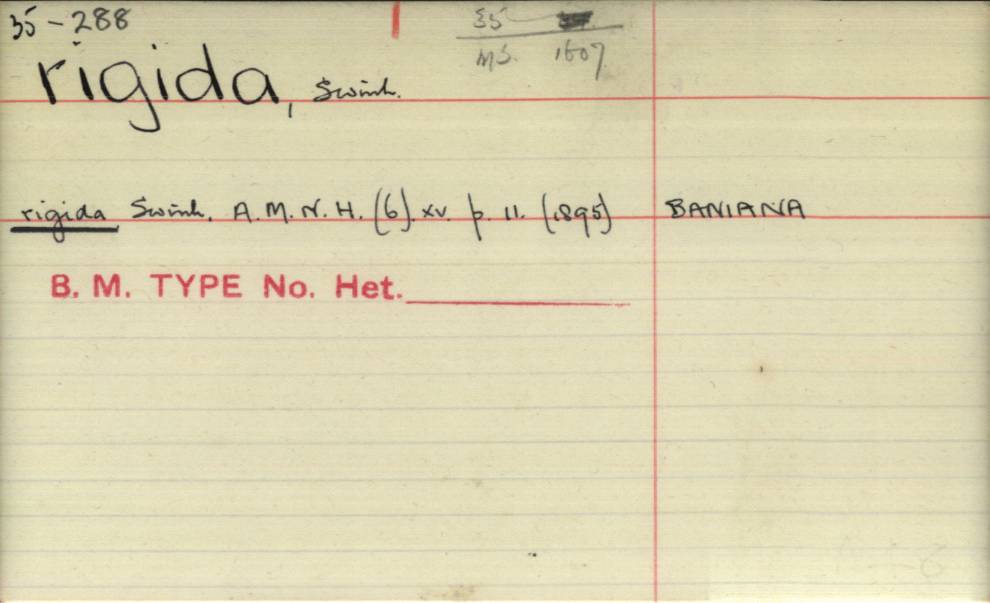 35-288
35
MS. 1607
rigida, Swinh.
rigida Swinh. A.M.N.H. (6) xv. p. 11. (1895) BANIANA
B. M. TYPE No. Het.